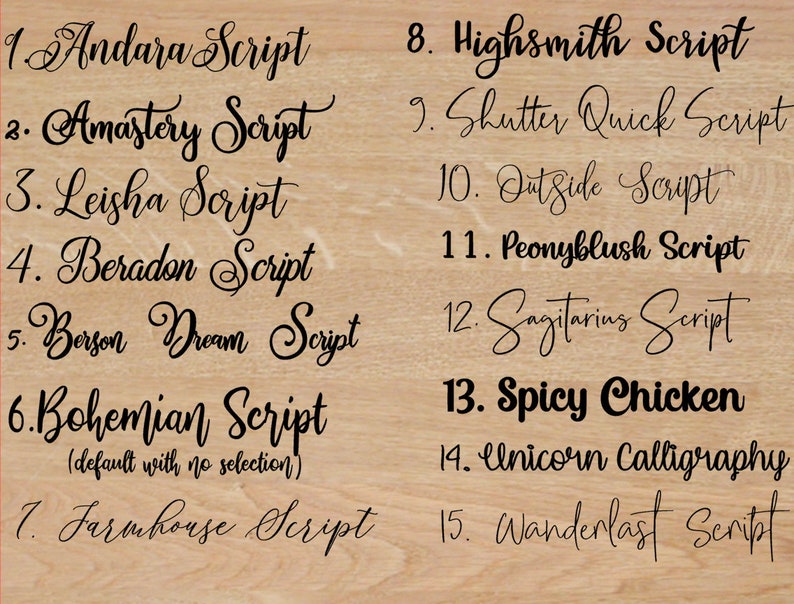 1. Andara Script
2. Amastery Script
3. Leisha Script
4. Beradon Script
5. Berson Dream Script
6. Bohemian Script
(default with no selection)
7. Farmhouse Script
8. Highsmith Script
9. Shutter Quick Script
10. Outside Script
11. Peonyblush Script
12. Sagitarius Script
13. Spicy Chicken
14. Unicorn Calligraphy
15. Wanderlast Script